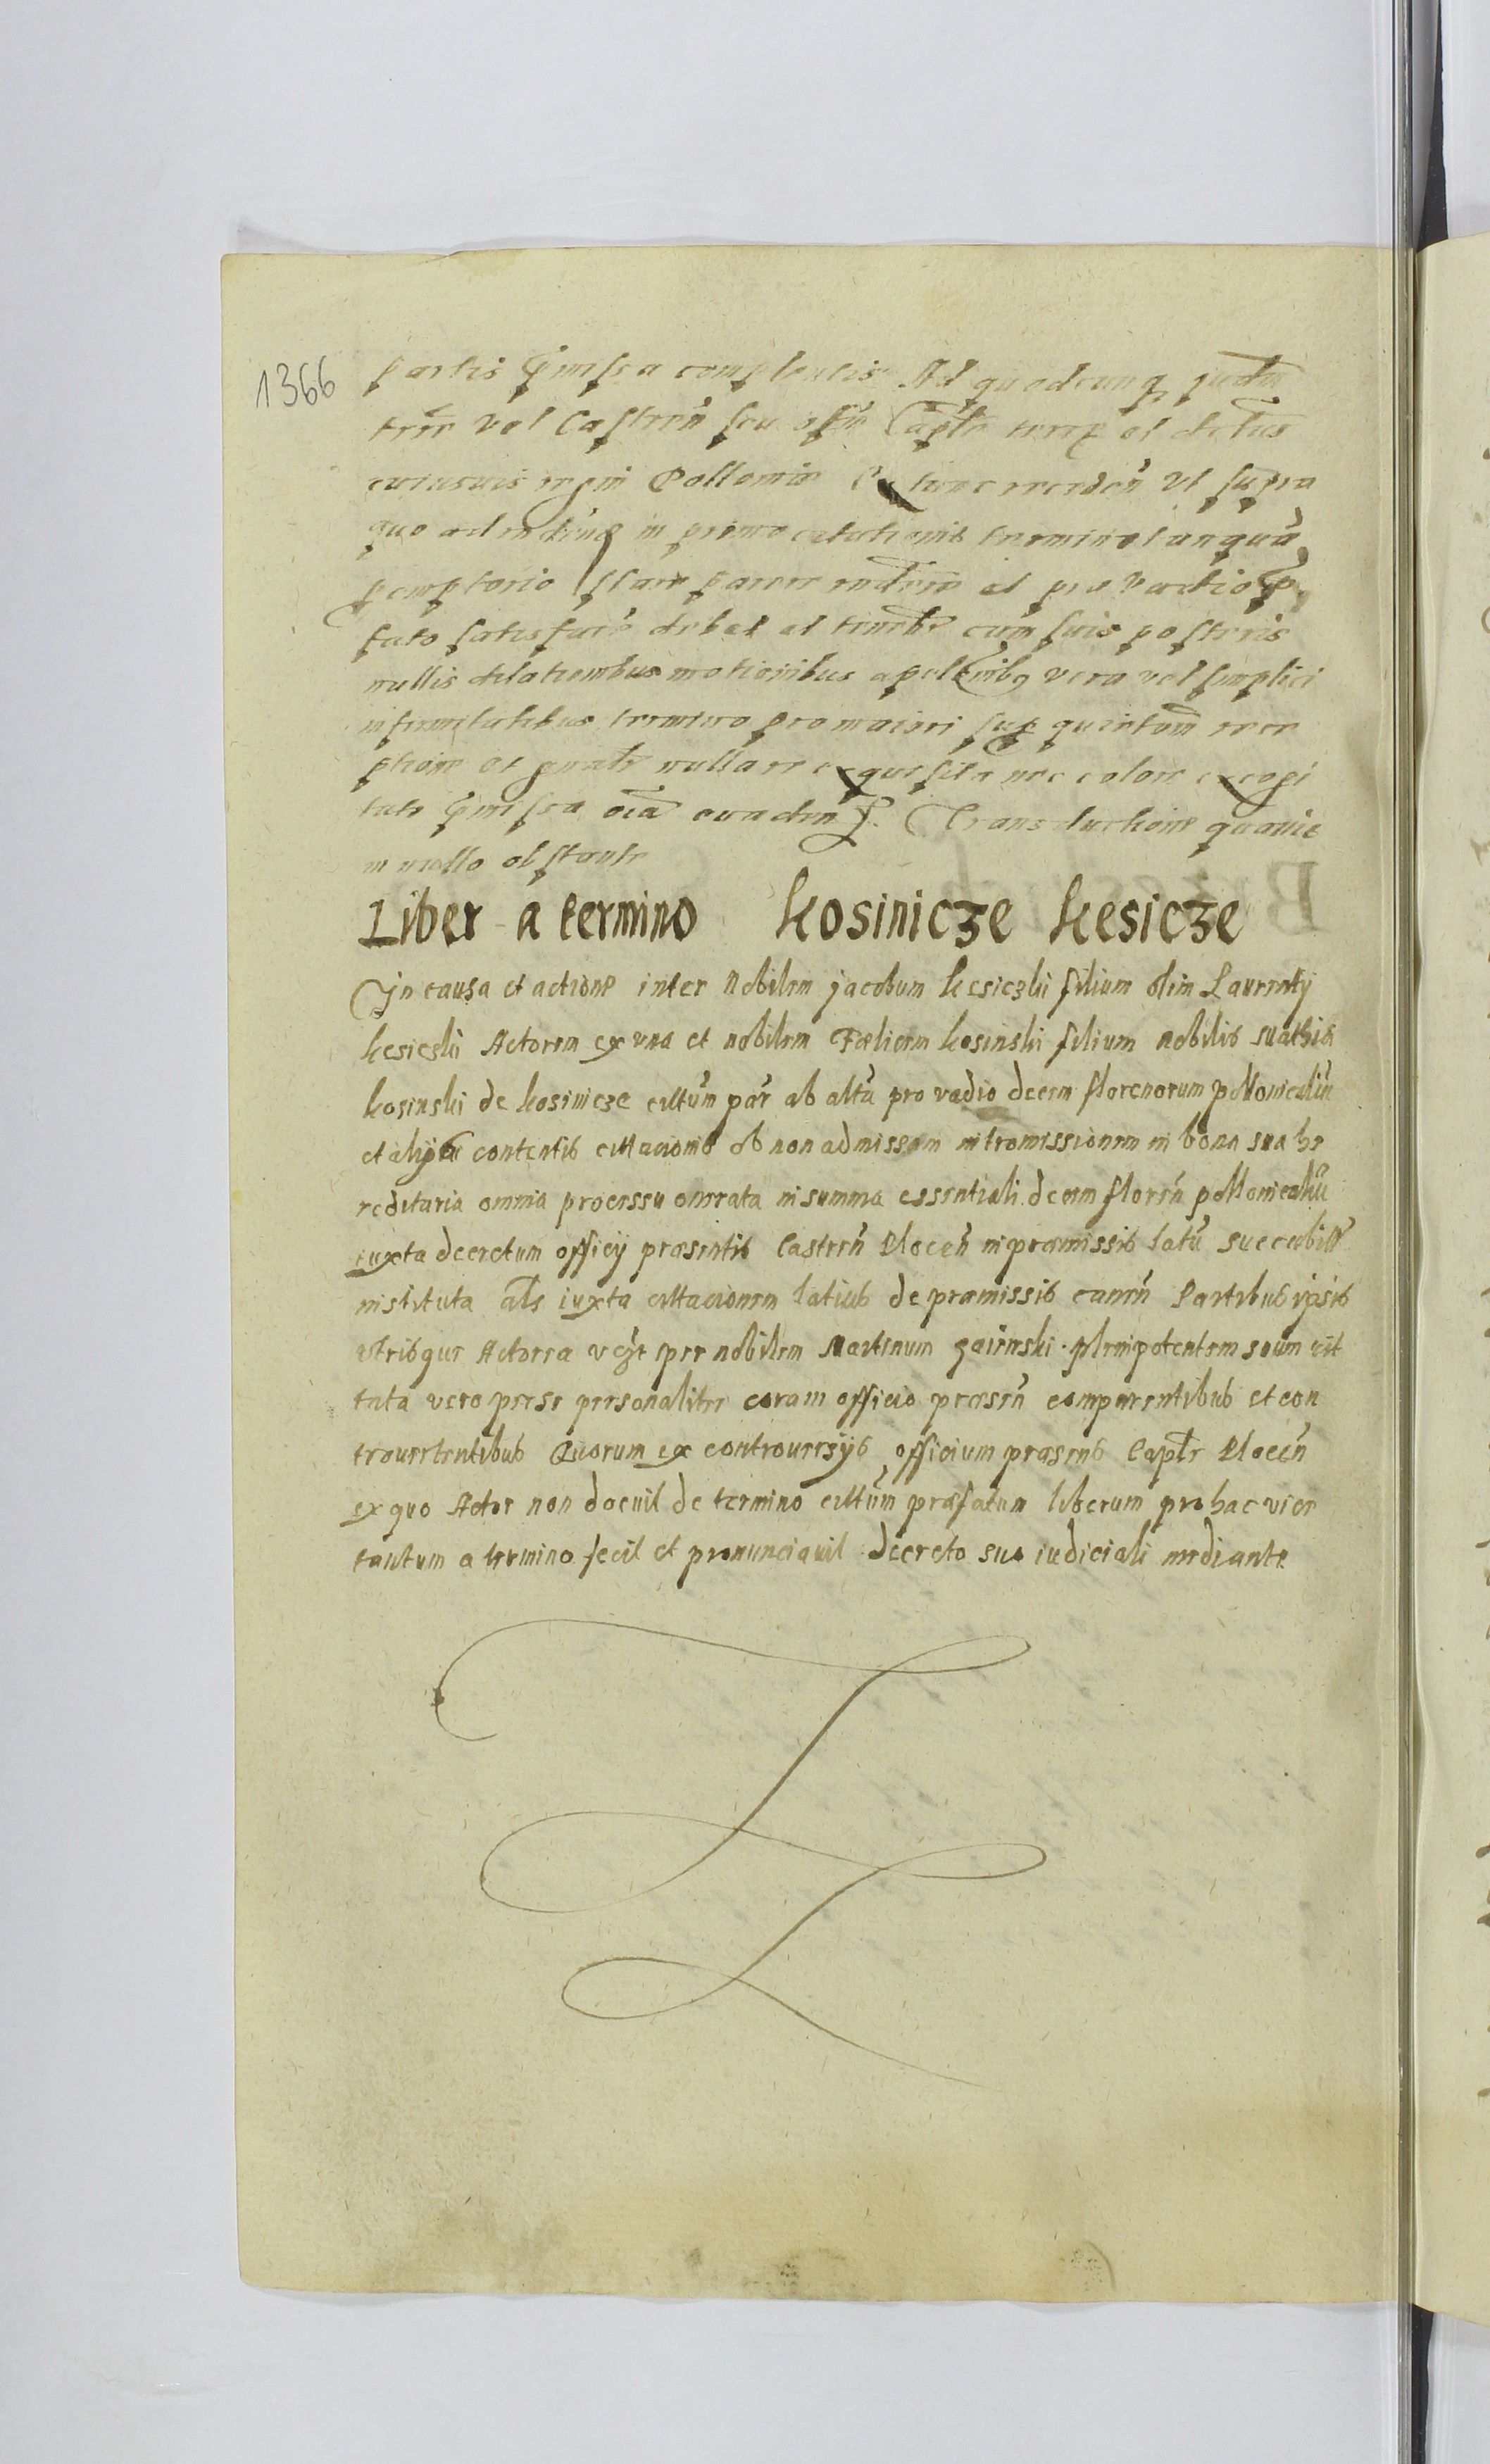 1366
partis p̃missa complentis Ad quodcunq̃ judm̃
terre vel Castren̄ seu offm̄ Captle terre et distus
cuiusuis regni Pollonie Ex tunc recedeñ Vt supra
quo ad in primo citationis termino tanquã
pemptorio stare parere et pro vadio p̃
fato satisfacere debet et tenebr̃ cum suis posteris
nullis dilationibus motionibus apeltñibꝯ vera vel simplici
infirmitatibus termino pro maiori sup quartum exce
ptione et gnałr nulla re exquisita nec colore excogi
tate p̃missa oĩa euaden. Transductione quauis
in nullo obstante
Liber a termino Kosinicze Kesicze
In causa et actione inter Nobilem jacobum Kesiczki filium olim Laurentij
Kesiczki Actorem ex vna et nobilem Fœlicem Kosinski filium nobilis Mathia
Kosinski de Kosinicze cittum par̃ ab alta pro vadio decem florenorum pollonicaliũ
et alijs contentis cittacionis ob non admissam intromissionem in bona sua he
reditaria omnia processu onerata in summa essentiali decem floreñ pollonicaliũ
iuxta decretum officij præsentis Castreñ Ploceñ in præmissis latũ succubitt
instituta als iuxta cittacionem latius de præmissis caneñ Partibus ipsis
vtrisque Actorea per nobilem Martinum plenipotentem suum cit
tata vero per se personaliter coram officio præseñ comparentibus et con
trouertentibus Quorum ex controuersijs officium præsens Captle Ploceñ
ex quo Actor non docuit de termino cittum præfatum liberum pro hac vice
tantum a termino fecit et pronunciauit decreto suo iudiciali mediante